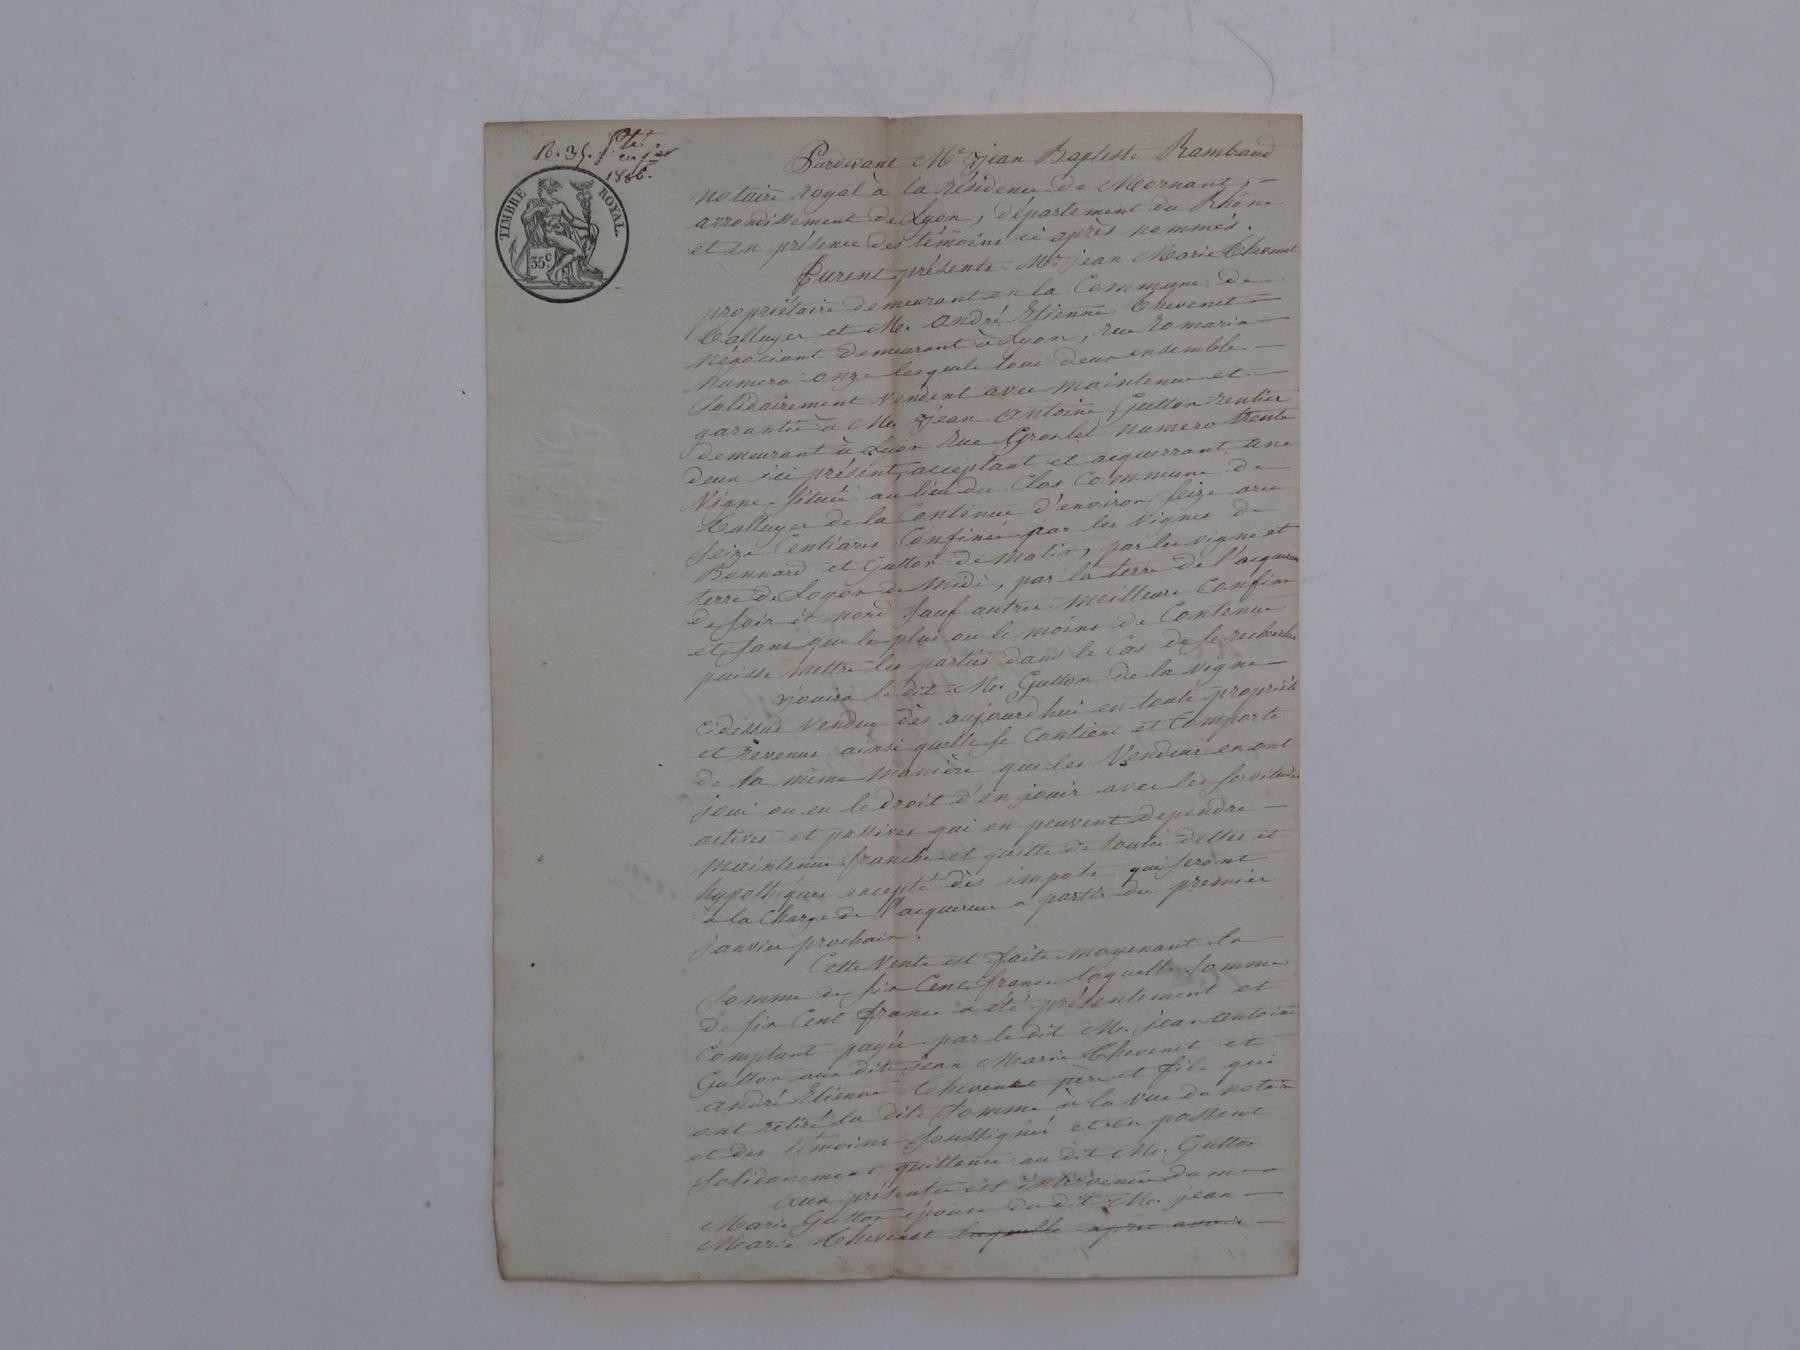 R. 35.
1836.
TIMBRE ROYAL.
35c
Pardevant Me jean Baptiste Rambaud
notaire royal à la résidence de Mornant, -
arrondissement de Lyon, département du Rhône
et en présence des témoins ci après nommés.
Furent présents Mr jean Marie Chevenet
propriétaire demeurant en la Commune de
Talluyer et M. André Etienne Chevenet -
négociant demeurant à Lyon, rue romarin -
numero onze lesquels tous deux ensemble -
solidairement vendent avec maintenue et -
garantie à M. jean Antoine Gutton rentier
demeurant à Lyon rue Grolet numero trente
deux ici présent, acceptant et acquerrant une
Vigne située au lieu du Clos Commune de
Talluyer de la Contenue d'environ seize ares
seize Centiares Confinée par les vignes de
Bonnard et Gutton de matin, par les vigne et
terre de Logon de midi, par la terre de l'acquereur
de soir et nord sauf autres meilleurs Confins
et sans que le plus ou le moins de Contenue
puisse mettre les parties dans le Cas de se recherche
jouira le dit M. Gutton de la vigne -
cidessus vendue dès aujourd'hui en toute propriété
et revenus ainsi quelle se Contient et Comporte
de la même manière que les Vendeurs en ont
joui ou eu le droit d'en jouir avec les servitudes
actives et passives qui en peuvent dependre -
maintenue franche et quitte de toutes dettes et
hypothèques excepté des impots qui seront
à la Charge de l'acquereur a partir du premier
janvier prochain.
Cette vente est faite moyenant la -
somme de six Cent francs laquelle somme
de six Cent francs a été présentement et
Comptant payée par le dit M. jean antoine
Gutton aux dits jean Marie Chevenet et
andré Etienne Chevenet père et fils qui
ont retiré la dite somme à la vue du notaire
et des témoins soussignés et en passent
solidairement quittance au dit M. Gutton
Aux présentes est intervenue dame
Marie Gutton épouse du dit M. jean -
Marie Chevenet laquelle après avoir -